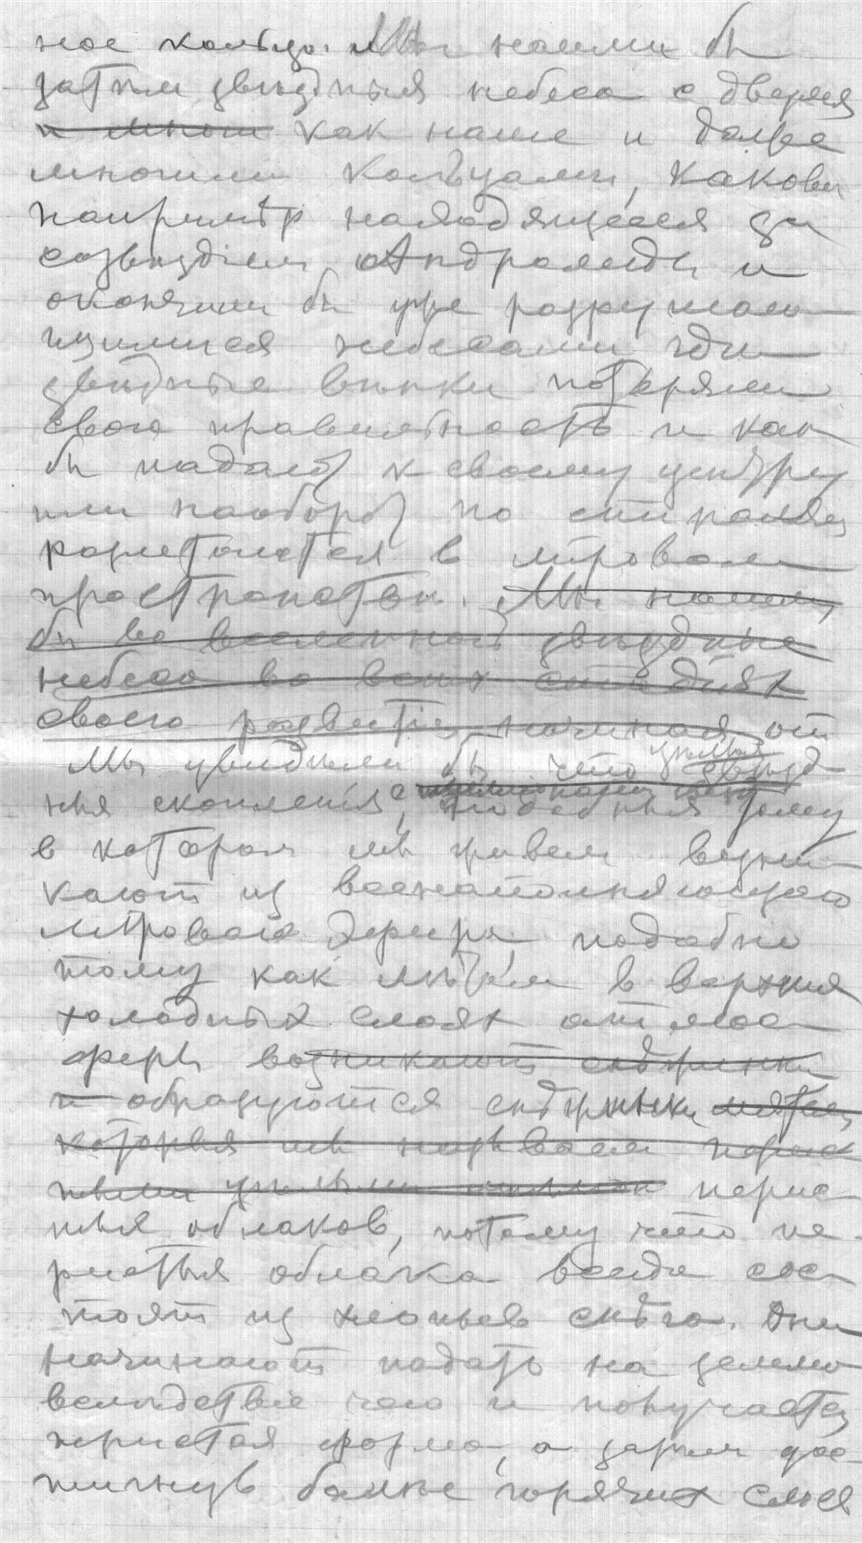 ное кольцо. Мы нашли бы
затѣм звѣздныя небеса с двумя
и много как наше и далѣе
многими кольцами, каковы
напримѣр находящееся за
созвѣздіем Андромеды и
окончили бы уже разрушаю-
щимися небесами гдѣ
звѣздные вѣнки потеряли
свою правильность и как
бы падают к своему центру
или наоборот по спиралям
разлетаются в міровом
пространствѣ. Мы нашли
бы во вселенной звѣздные
небеса во всѣх стадіях
своего развитія, начиная от
Мы увидѣли бы что цѣлыя звѣзд-
ныя скопленія, подобныя тому
в котором мы живем возни-
кают из всенаполняющаго
мірового эфира, подобно
тому как лѣтом в верхних
холодных слоях атмос-
феры возникают снѣжинки
и образуются снѣжинки
которыя мы называем
перис-
тыя облаков, потому что пе-
ристыя облака всегда сос-
тоят из хлопьев снѣга. Они
начинают падать на землю
вслѣдствіе чего и получается
перистая форма, а затѣм дос-
тигнув болѣе горячих слоев